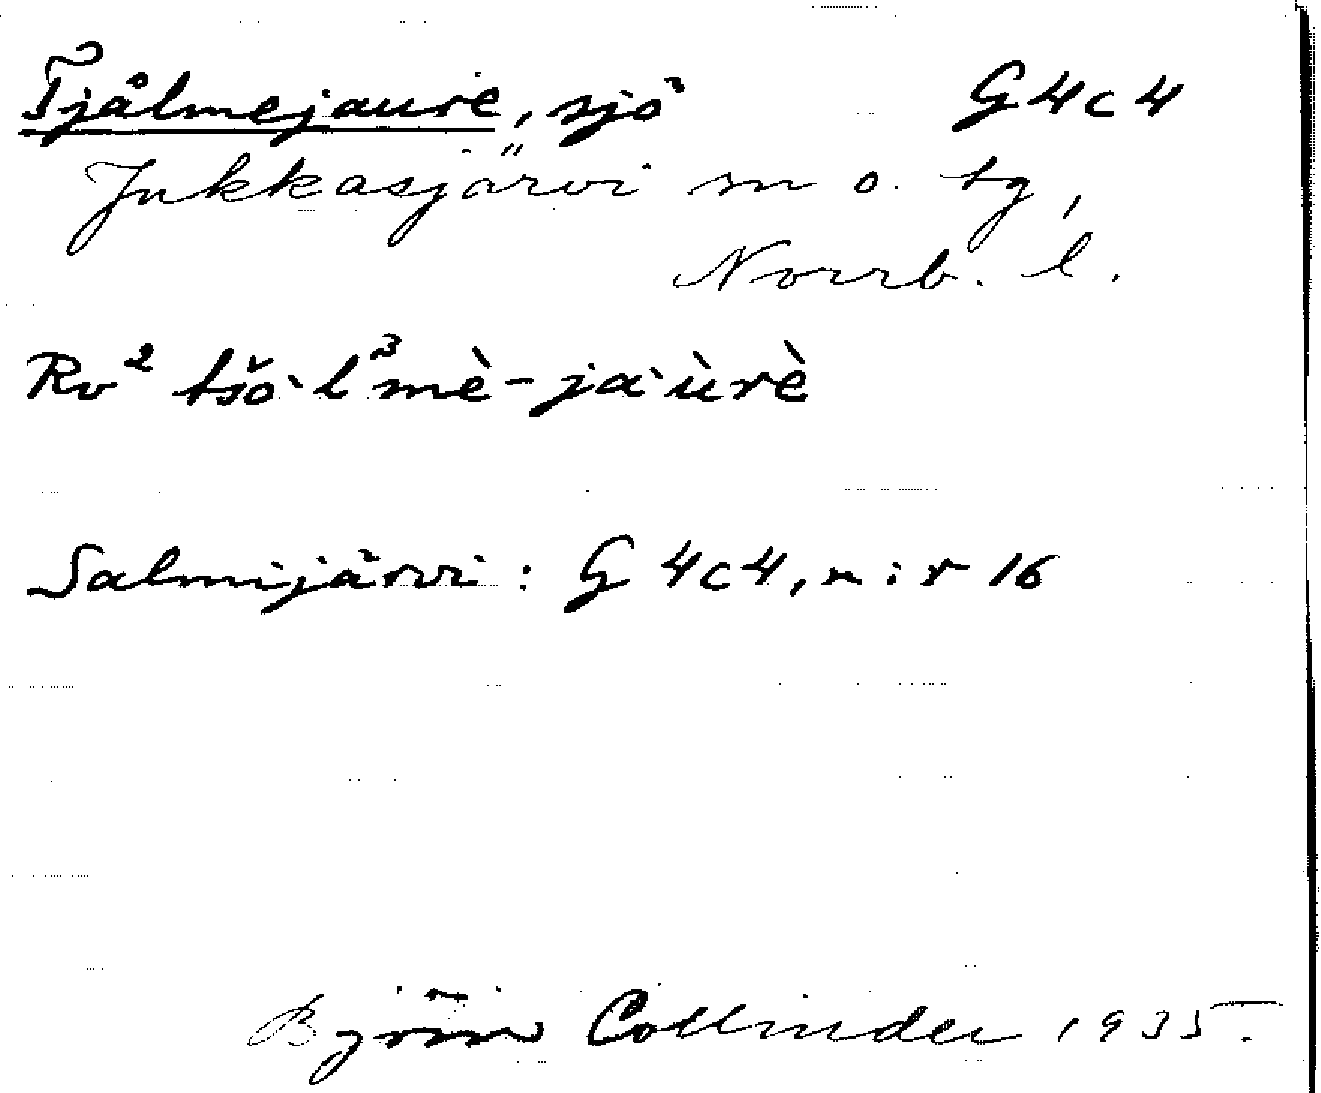 Tjålmejaure, sjö G4c4
Jukkasjärvi sn o. tg,
Norrb. l.
Rv² tšo͔·l³mè-ja·ùrè
Salmijärvi: G 4c4, n:r 16
Björn Collinder 1935.